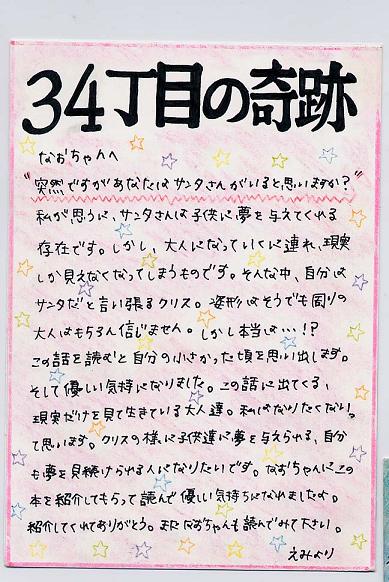 34丁目の奇跡
なおちゃんへ
"突然ですがあなたはサンタさんがいると思いますか?"
私が思うに、サンタさんは子供に夢を与えてくれる
存在です。しかし、大人になっていくに連れ、現実
しか見えなくなってしまうものです。そんな中、自分は
サンタだと言い張るクリス。姿形はそうでも周りの
大人はもちろん信じません。しかし本当は…!?
この話を読むと自分の小さかった頃を思い出します。
そして優しい気持になりました。この話に出てくる、
現実だけを見て生きている大人達。私はなりたくないっ
て思います。クリスの様に子供達に夢を与えられる、自分
も夢を見続けられる人になりたいです。なおちゃんにこの
本を紹介してもらって読んで優しい気持ちになれましたよ。
紹介してくれてありがとう。またなおちゃんも読んでみて下さい。
えみより